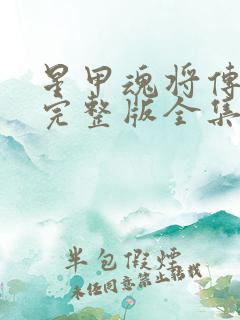 星甲魂将傳
完整版全集
半包假煙
未经同意禁止转载